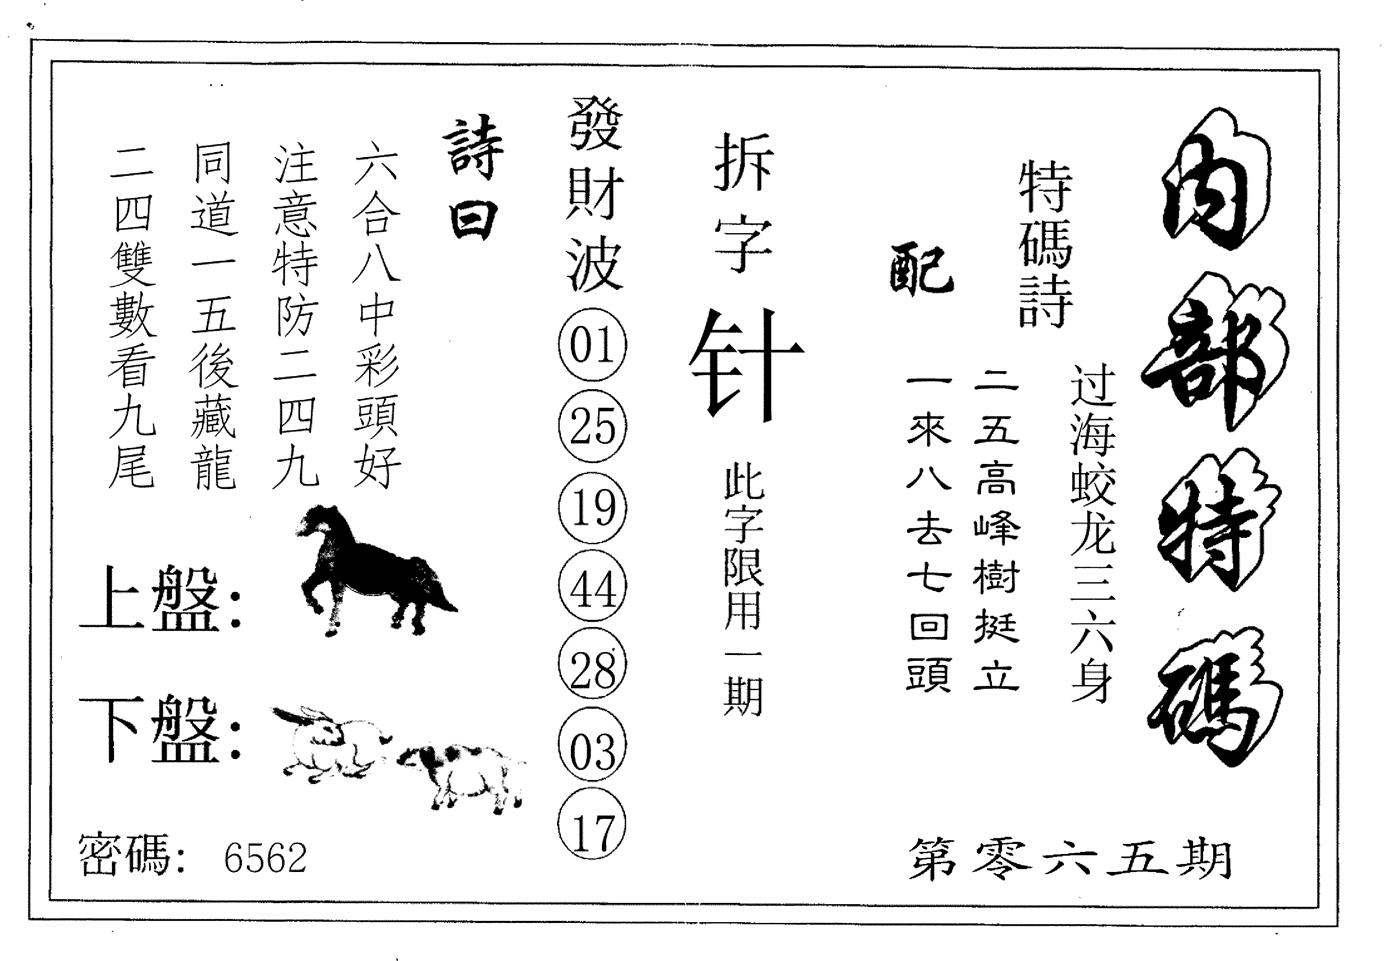 内部特碼
特碼詩
过海蛟龙三六身
配
二五高峰樹挺立
一來八去七回頭
第零六五期
拆字
针
此字限用一期
發財波
01
25
19
44
28
03
17
詩曰
六合八中彩頭好
注意特防二四九
同道一五後藏龍
二四雙數看九尾
上盤：
下盤：
密碼： 6562